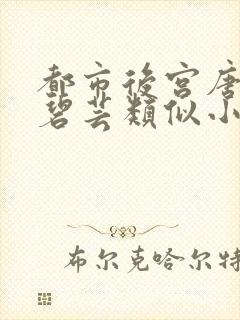 都市後宮唐
碧芸類似小
布尔克哈尔特